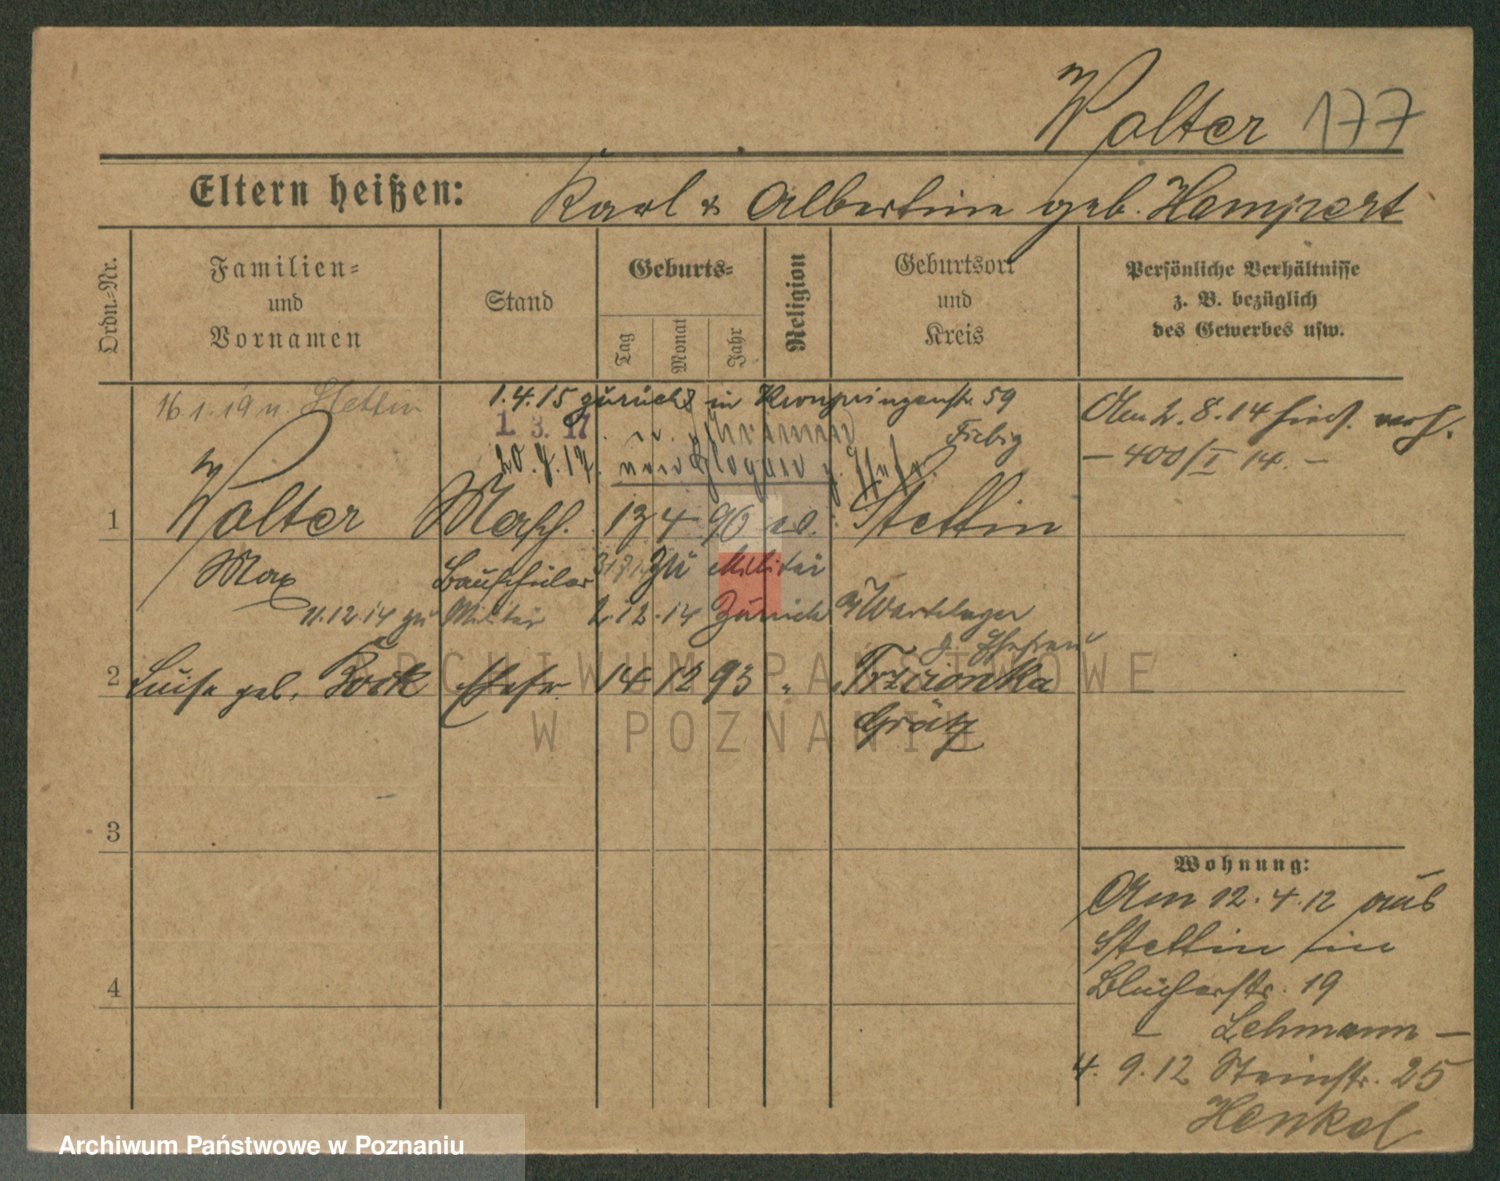 Walter 177
Eltern heißen: Karl & Albertine geb. Hempert
Ordn.-Nr.
Familien-
und
Vornamen
Stand
Geburts-
Tag
Monat
Jahr
Religion
Geburtsort
und
Kreis
Persönliche Verhältnisse
z. B. bezüglich
des Gewerbes usw.
16.1.19 n. Stettin
1.4.15 zurück in Kronprinzenstr. 59
1. 3. 17
Fiebig
20.7.17. von Glogau z. Ehefr.
Am 2.8.14 hies. verh.
- 400/I 14. -
1 Walter Masch. 13 4 90 ev. Stettin
Max Bauschüler zu Militär
11.12.14 zu Militär 2.12.14 zurück Wartelager
z. Ehefrau
2 Luise geb. Kock Ehefr. 14 12 93 " Trzcionka
Grätz
3
4
Wohnung:
Am 12.4.12 aus
Stettin in
Blücherstr. 19
- Lehmann -
4.9.12 Steinstr. 25
Henkel
ARCHIWUM PAŃSTWOWE
W POZNANIU
Archiwum Państwowe w Poznaniu